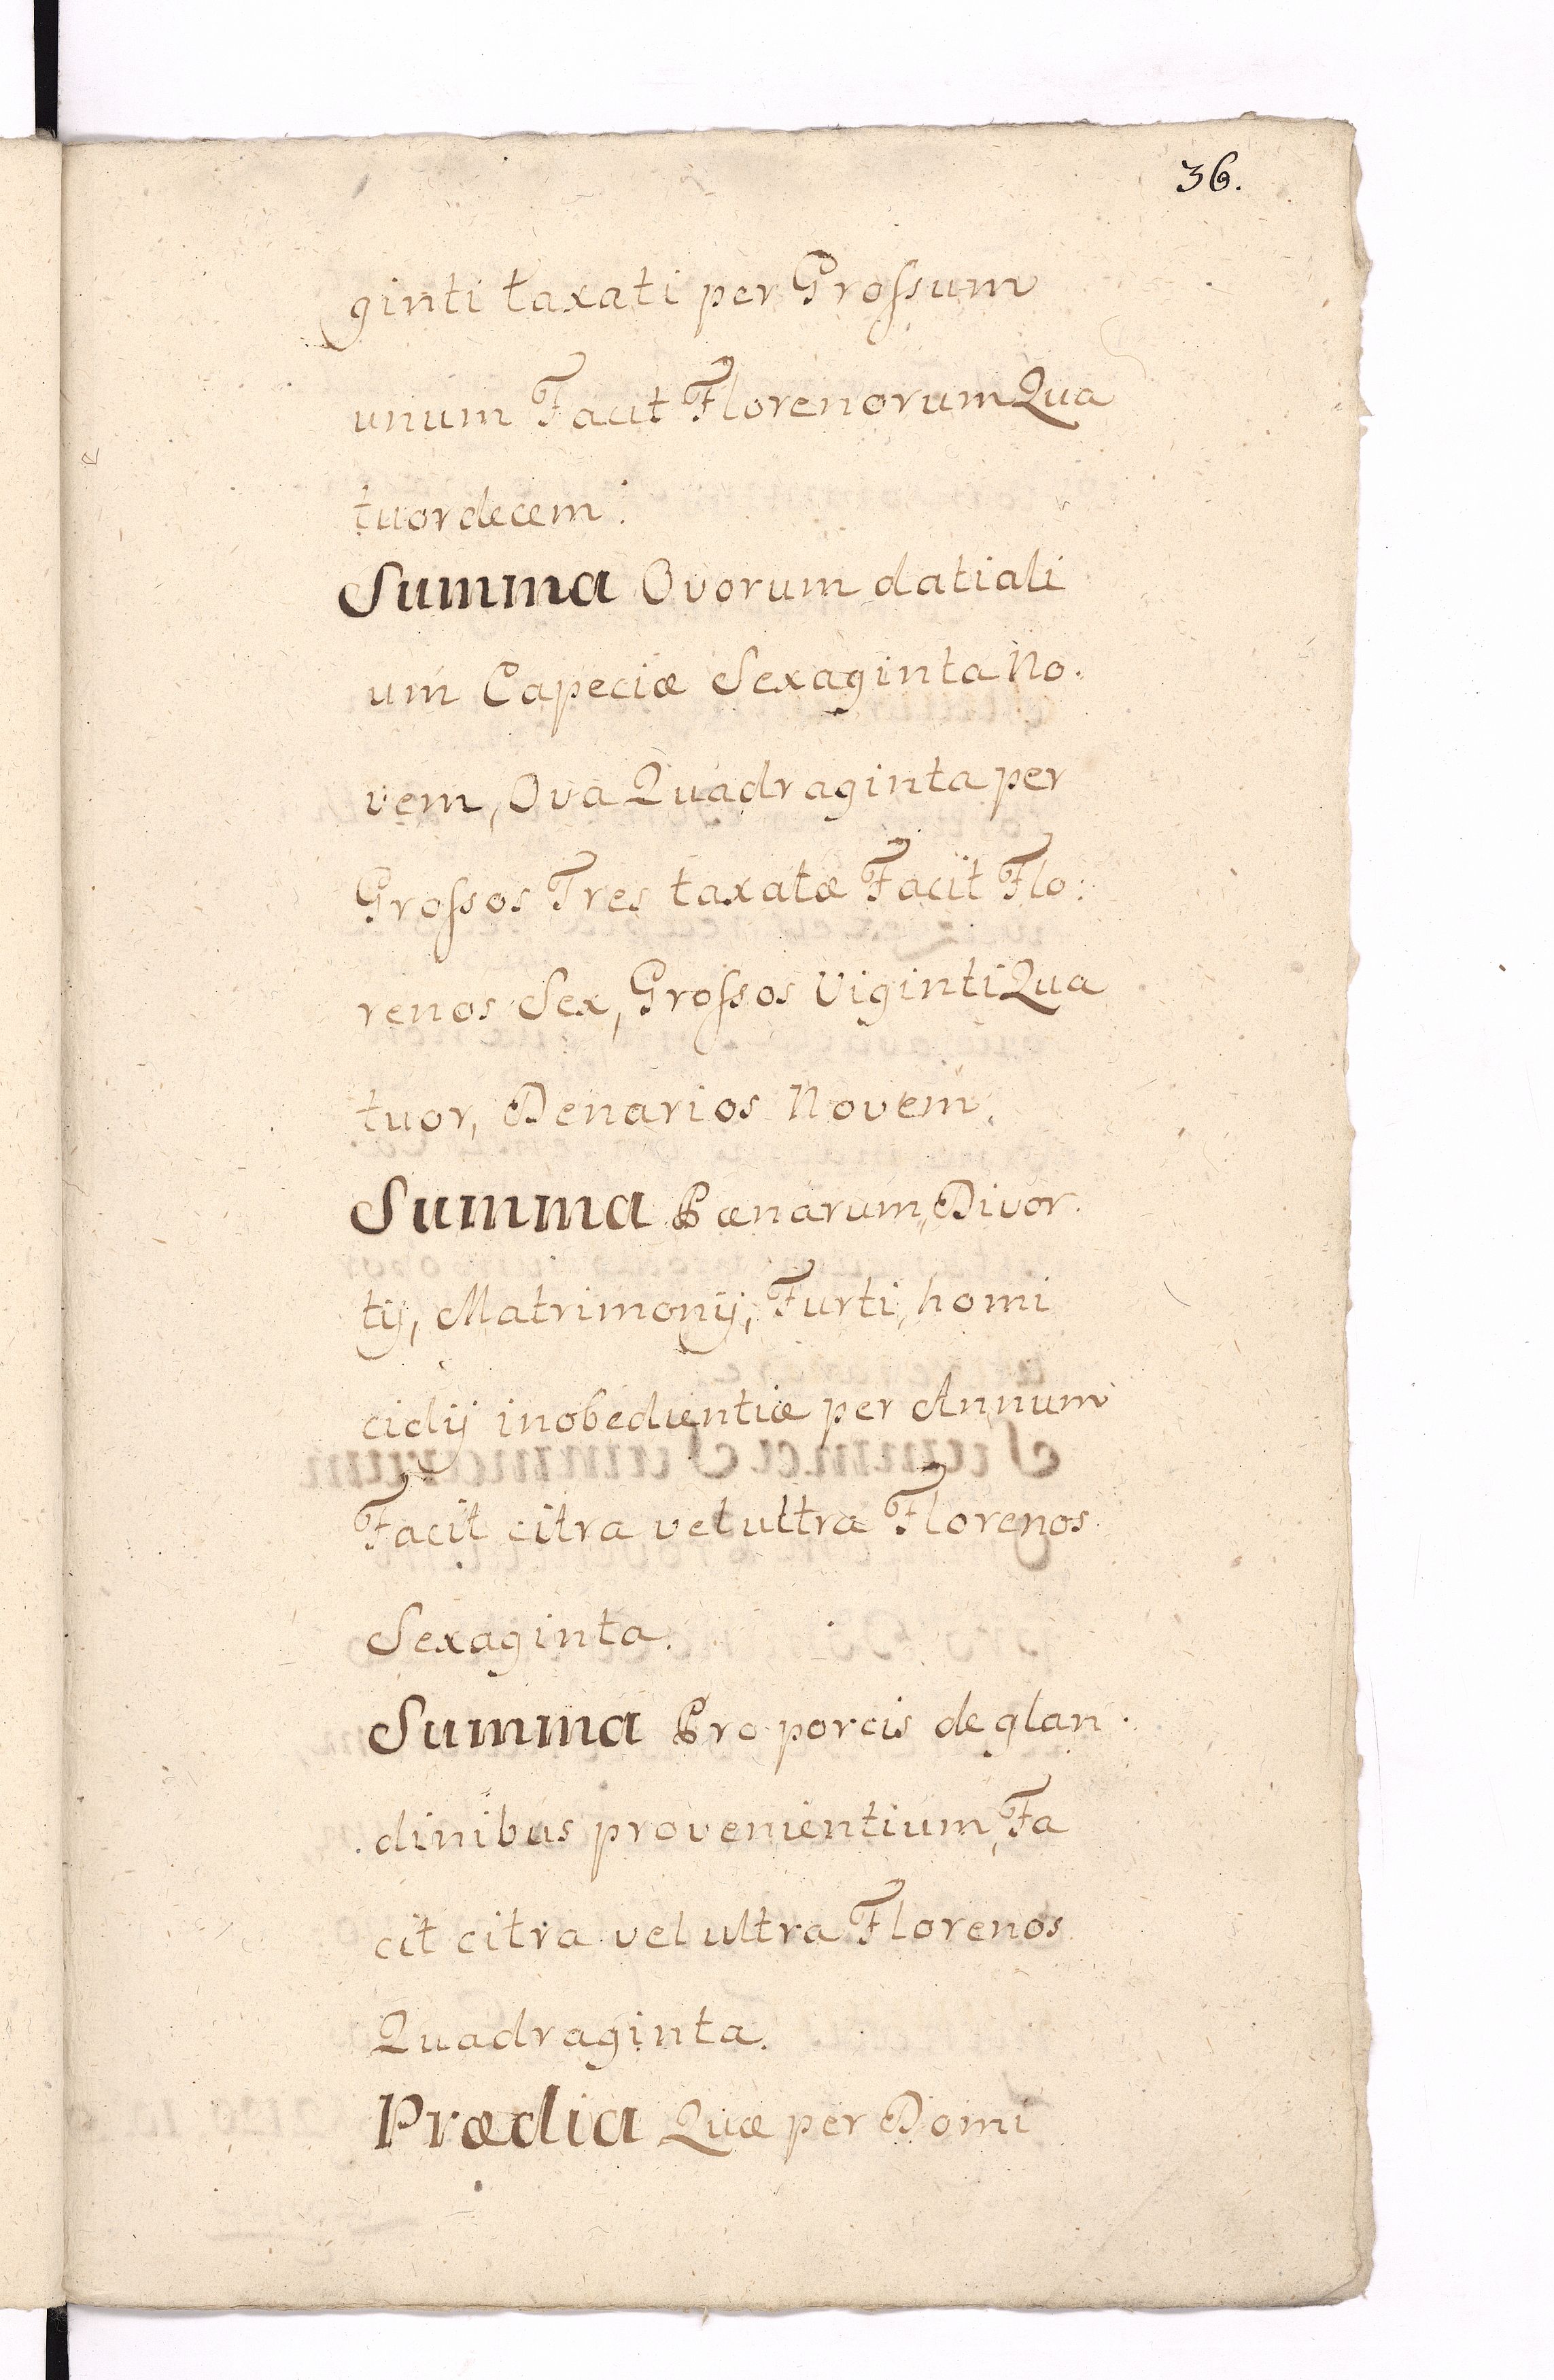 36.
ginti taxati per Grossum
unum Facit Florenorum Qua
tuordecem.
Summa Ovorum datiali
um Capeciæ Sexaginta No.
vem, Ova Quadraginta per
Grossos Tres taxatæ Facit Flo:
renos Sex, Grossos Viginti Qua
tuor, Denarios Novem.
Summa Pœnarum, Divor.
tij, Matrimonij, Furti, homi
cidij inobedientiæ per Annum
Facit citra vel ultra Florenos
Sexaginta.
Summa Pro porcis de glan.
dinibus provenientium, Fa
cit citra vel ultra Florenos
Quadraginta.
Prædia Quæ per Domi